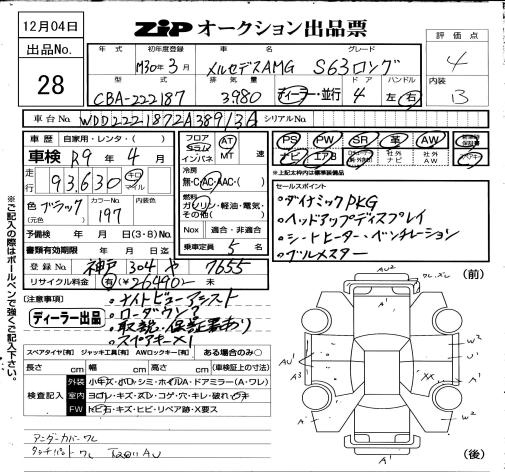 12月04日
ZIP オークション出品票
出品No.
28
年式 初年度登録 車名 グレード
M30年3月 メルセデスAMG S63ロング
型式 排気量 ドア ハンドル
CBA-222187 3,980 ディーラー・並行 4 左・右
評価点
4
内装
B
車台No. シリアルNo.
車歴 自家用・レンタ・( )
車検 R9年4月
走行 93,630 キロ マイル
色 ブラック (元色) カラーNo. 197 内装色
予備検 年 月 日(3・8)No.
書類有効期限 年 月 日迄
登録No. 神戸 304 や 7655
リサイクル料金 (有)(¥26490) ・ 未
フロア コラム インパネ AT MT 速
冷房
無・C・AC・AAC・( )
燃料
ガソリン・軽油・電気・その他( )
Nox 適合・非適合
乗車定員 5 名
PS PW SR 革 AW
ナビ エアB 社外ナビ 社外AW
※上記太枠内は標準装備品
セールスポイント
・ダイナミックPKG
・ヘッドアップディスプレイ
・シートヒーター・ベンチレーション
・ブルメスター
(注意事項)
・ナイトビューアシスト
・ローダウン?
・取説・保証書あり
・スペアキー×1
ディーラー出品
スペアタイヤ[有] ジャッキ工具[有] AWロックキー[有] ある場合のみ○
長さ cm 幅 cm 高さ cm (車検証上の寸法)
検査記入
外装 小キズ・ボロ・シミ・ホイルA・ドアミラー(A・ワレ)
室内 ヨゴレ・キズ・スレ・コゲ・穴・キレ・破れ・ウキ
FW トビ石・キズ・ヒビ・リペア跡・X要ス
アンダーカバーワレ
※ご記入の際はボールペンで強くご記入下さい。
(前)
AU²
ワレ、ズレ
A¹
W²
AU¹
U¹
A³
XX
A¹
W²
A¹
(後)